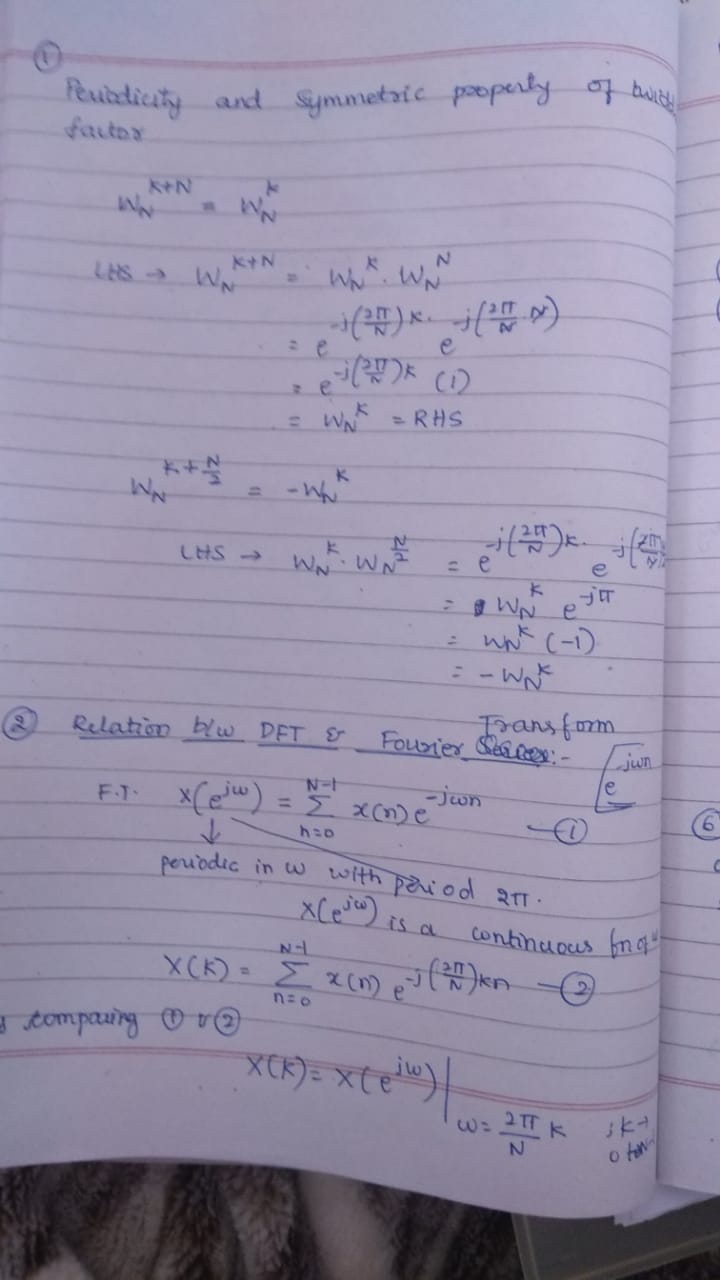 ①
Periodicity and Symmetric property of
factor
W_N^{K+N} = W_N^K
LHS → W_N^{K+N} = W_N^K . W_N^N
= e^{-j(2π/N)K} . e^{-j(2π/N . N)}
= e^{-j(2π/N)K} (1)
= W_N^K = RHS
W_N^{K+N/2} = -W_N^K
LHS → W_N^K . W_N^{N/2} = e^{-j(2π/N)K} . e^{-j(2π/N
= W_N^K e^{-jπ}
= W_N^K (-1)
= - W_N^K
② Relation b/w DFT & Fourier Transform :-
F.T. X(e^{jω}) = Σ_{n=0}^{N-1} x(n) e^{-jωn} — ①
e^{-jωn}
↓
periodic in ω with period 2π.
X(e^{jω}) is a continuous fn of ω
X(K) = Σ_{n=0}^{N-1} x(n) e^{-j(2π/N)Kn} — ②
comparing ① & ②
X(K) = X(e^{jω}) | ω = 2π/N K ; K →
0 to N-
⑥